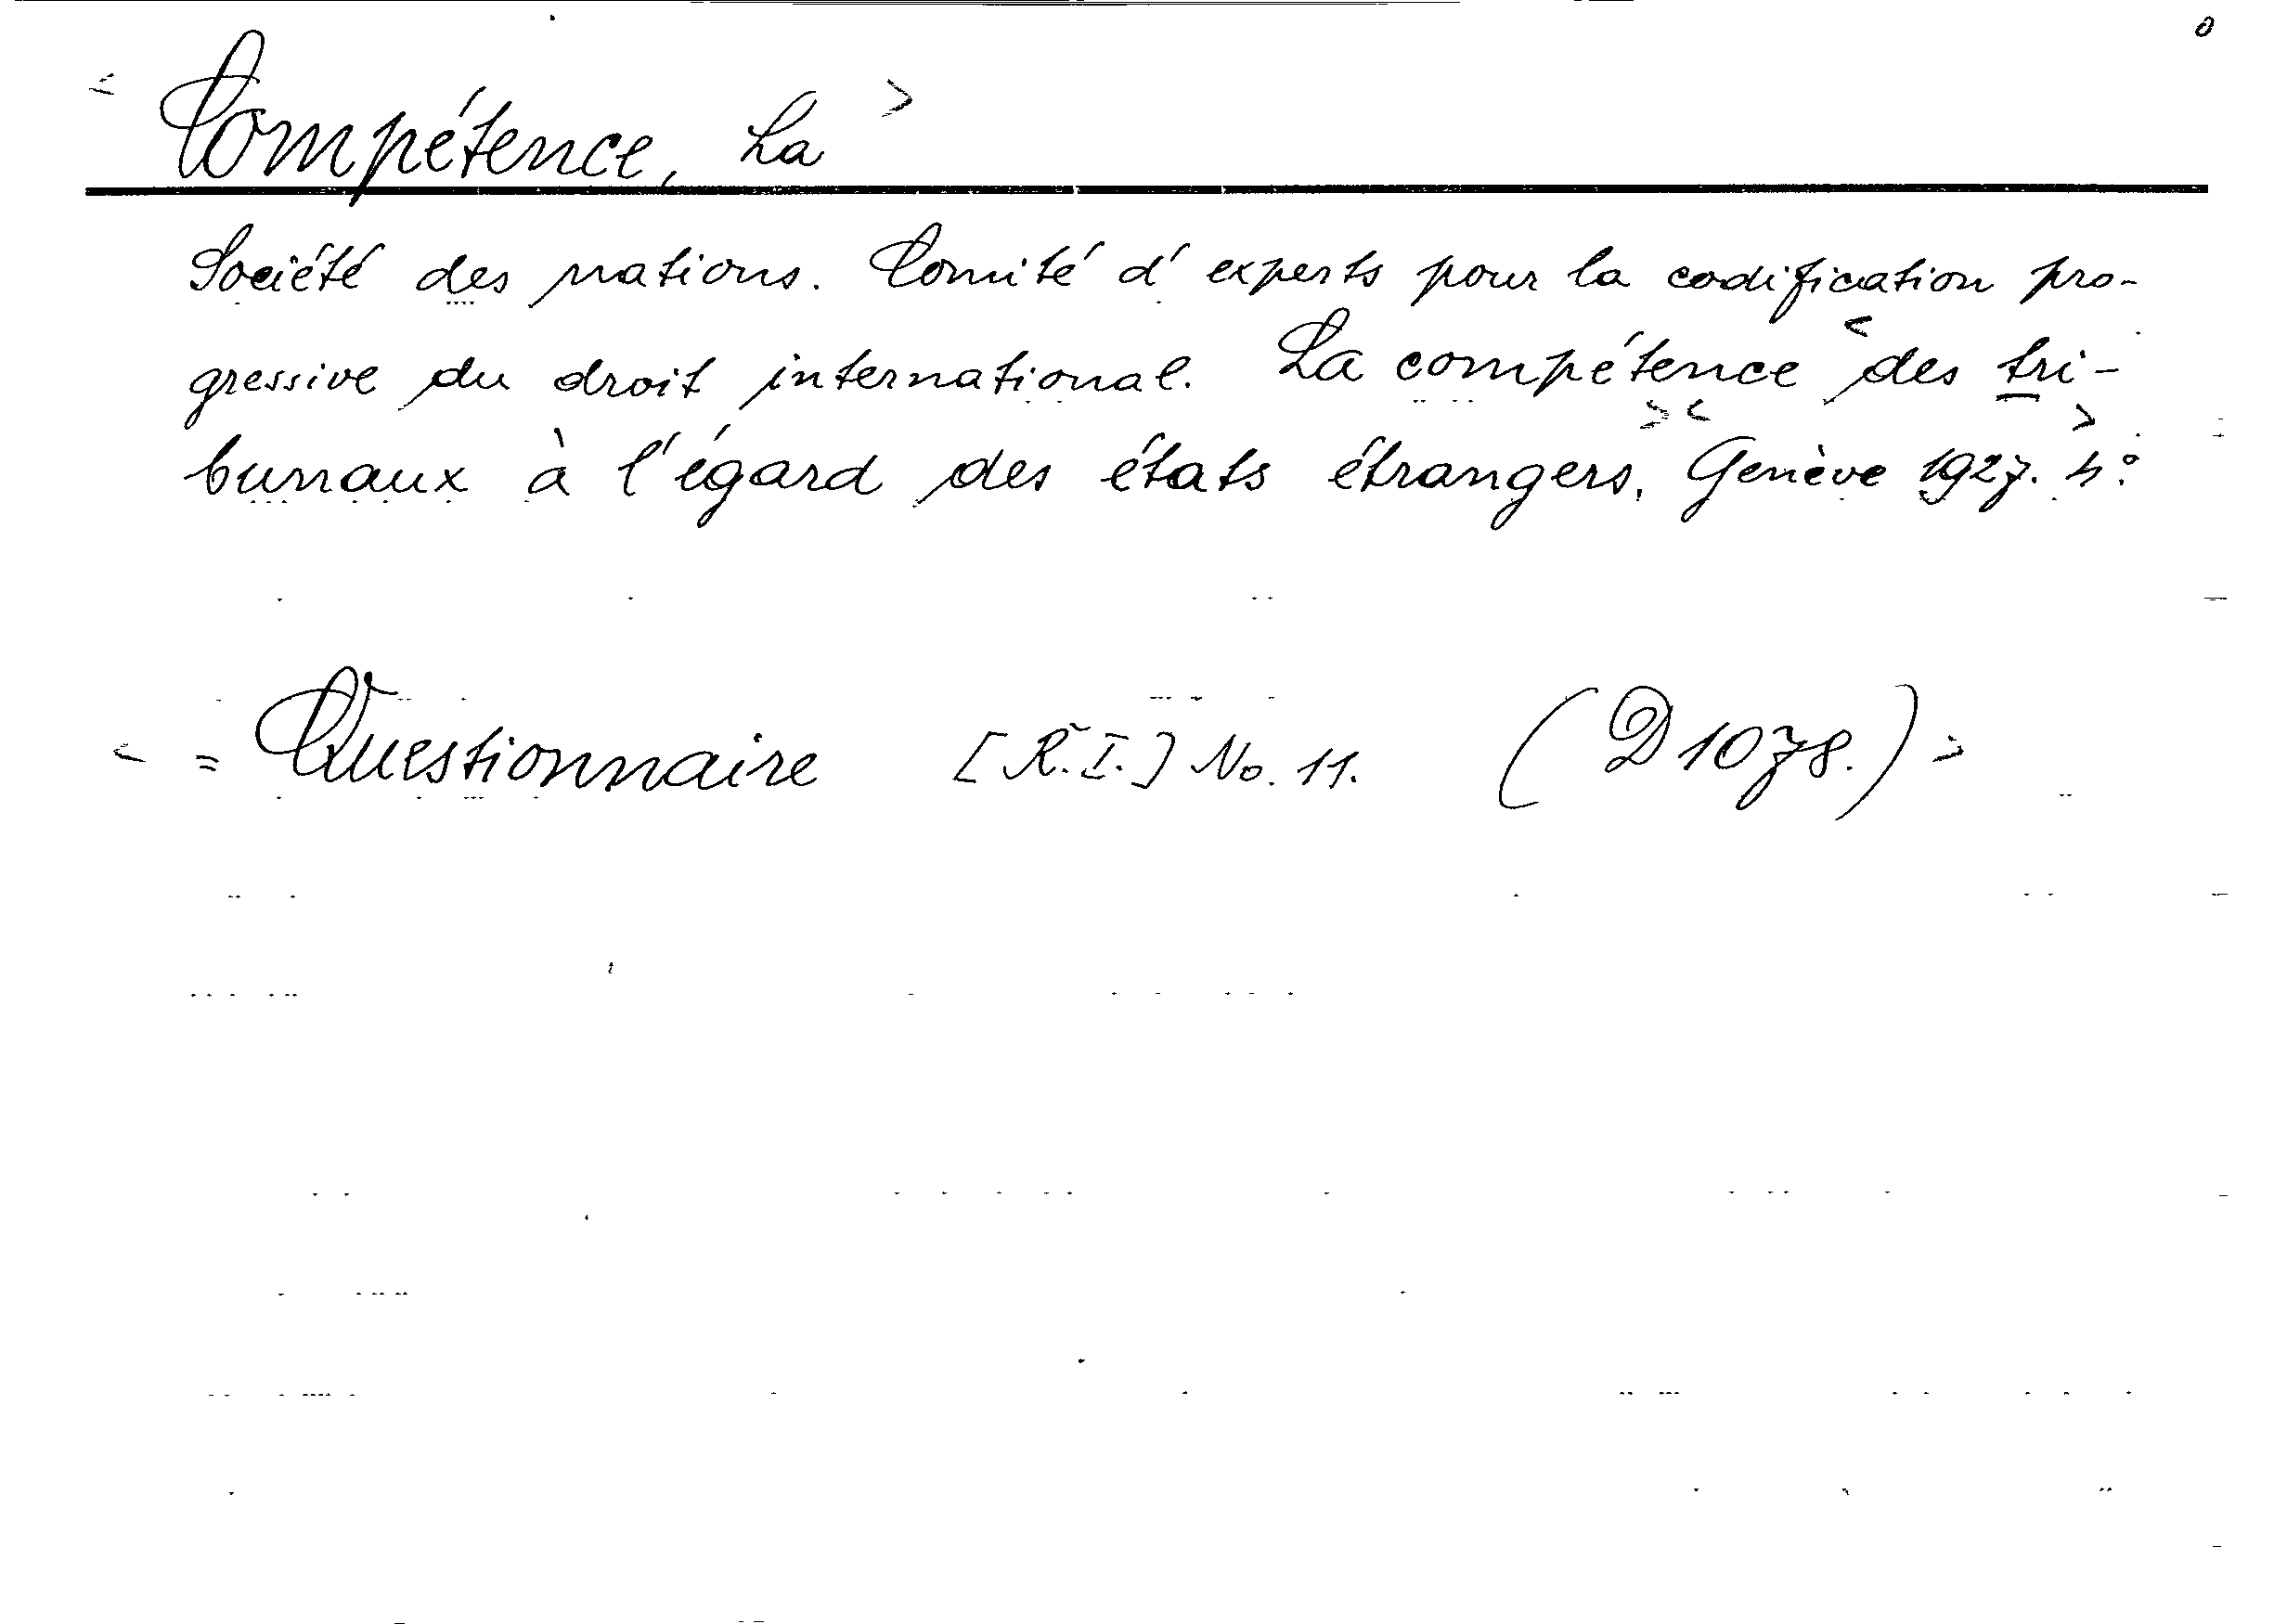 < Compétence, La >
Société des nations. Comité d'experts pour la codification pro-
gressive du droit international. La compétence < des tri-
bunaux à l'égard des états étrangers. > < Genève 1927. 4° >
< = Questionnaire [R.I.] No. 11. (D 1078.) >